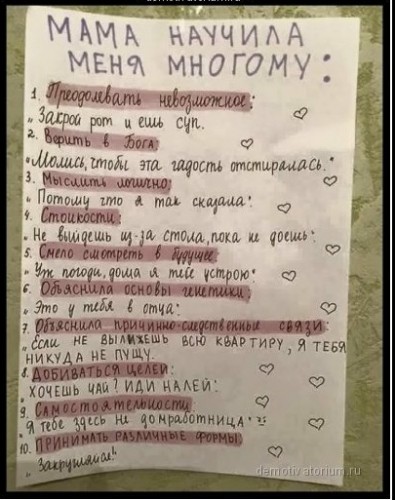 МАМА НАУЧИЛА
МЕНЯ МНОГОМУ:
1. Преодолевать невозможное:
"Закрой рот и ешь суп.
2. Верить в Бога:
"Молись, чтобы эта гадость отстиралась."
3. Мыслить логично:
"Потому что я так сказала."
4. Стойкости:
"Не выйдешь из-за стола, пока не доешь".
5. Смело смотреть в будущее:
"Уж погоди, дома я тебе устрою"
6. Объяснила основы генетики:
"Это у тебя в отца:
7. Объяснила причинно-следственные связи:
"Если не вылижешь всю квартиру, я тебя
никуда не пущу.
8. Добиваться целей:
Хочешь чай? Иди налей:
9. Самостоятельности
"Я тебе здесь не домработница"
10. Принимать различные формы
"Закругляйся!"
demotivatorium.ru